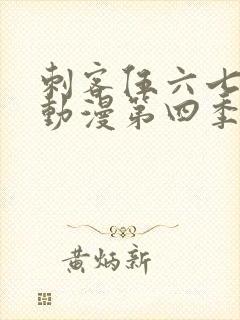 刺客伍六七
動漫第四季
黄炳新